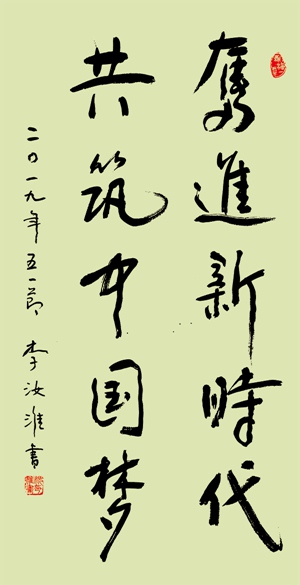 奮進新時代
共筑中国梦
二〇一九年五一节 李汝淮書